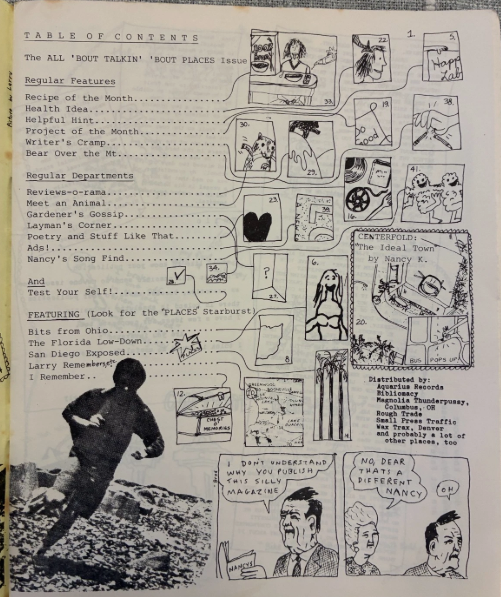 TABLE OF CONTENTS
1.
The ALL 'BOUT TALKIN' 'BOUT PLACES Issue
Regular Features
Recipe of the Month
Health Idea
Helpful Hint
Project of the Month
Writer's Cramp
Bear Over the Mt.
Regular Departments
Reviews-o-rama
Meet an Animal
Gardener's Gossip
Layman's Corner
Poetry and Stuff Like That
Ads!
Nancy's Song Find
And
Test Yourself!
FEATURING (Look for the "PLACES" Starburst)
Bits from Ohio
The Florida Low-Down
San Diego Exposed
Larry Remembers
I Remember
22.
5.
Happy
Lab
19.
DO
GOOD
38.
30.
29.
16.
41.
34.
?
6.
8.
12.
CHEST
OF
MEMORIES
CENTERFOLD:
The Ideal Town
by Nancy K.
20.
BUS
POPS UP
Distributed by:
Aquarius Records
Bibliomacy
Magnolia Thunderpussy,
Columbus, OH
Rough Trade
Small Frees Traffic
Wax Trax, Denver
and probably a lot of
other places, too
I DON'T UNDERSTAND
WHY YOU PUBLISH
THIS SILLY
MAGAZINE
NANCY'S
NO, DEAR
THATS A
DIFFERENT
NANCY
OH